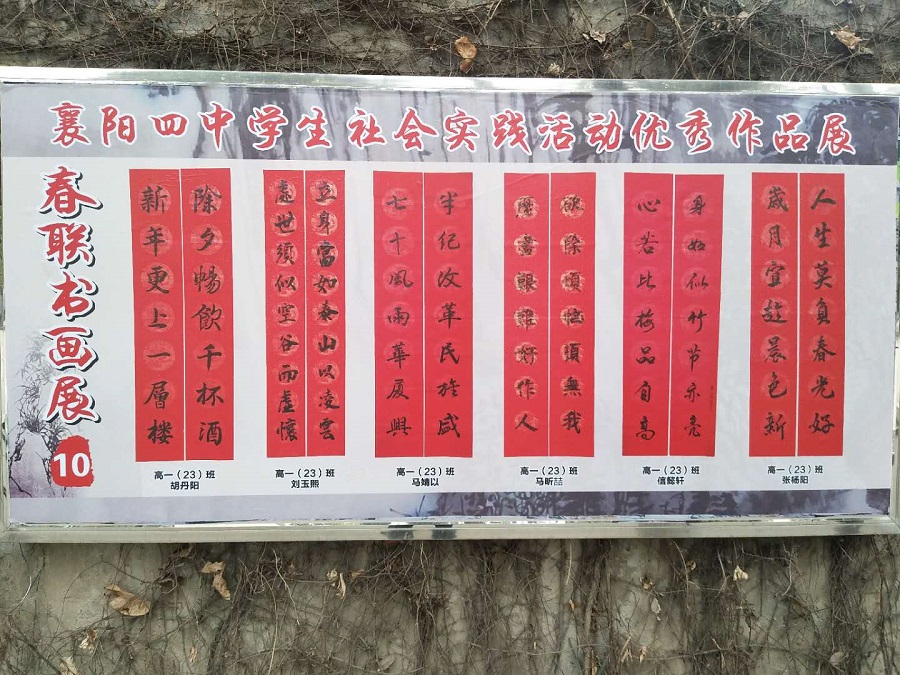 襄阳四中学生社会实践活动优秀作品展
春联书画展
10
除夕暢飲千杯酒
新年更上一層楼
高一（23）班
胡丹阳
立身富如泰山以凌雲
處世須似空谷而虛懷
高一（23）班
刘玉熙
半纪改革民族盛
七十風雨華厦興
高一（23）班
马婧以
欲除煩惱須無我
歷盡艱難好作人
高一（23）班
马昕喆
身如似竹节亦亮
心若比梅品自高
高一（23）班
信懿轩
人生莫負春光好
歲月宜趁晨色新
高一（23）班
张杨阳